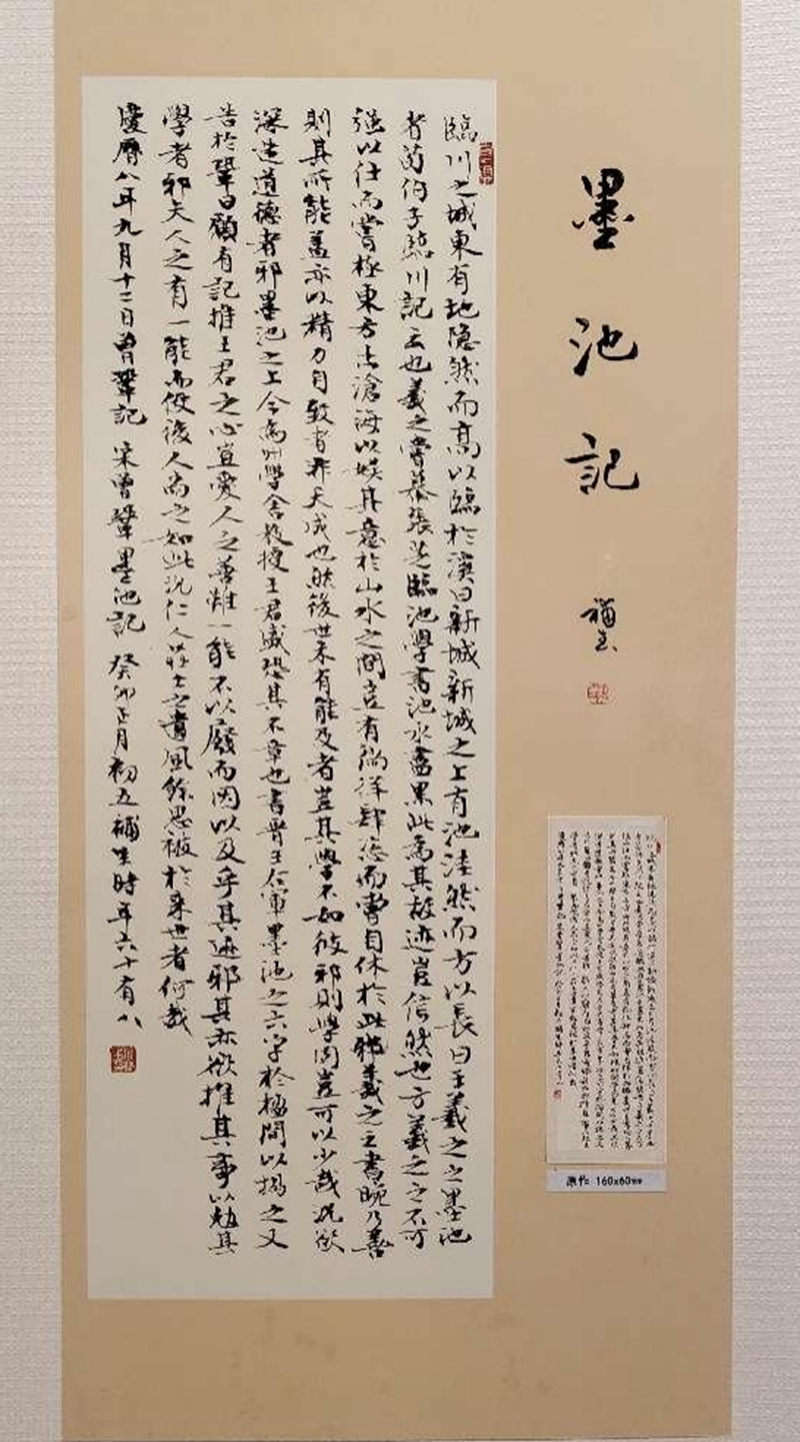 墨池記
臨川之城東有地隱然而高以臨於溪曰新城新城之上有池洼然而方以長曰王羲之之墨池
者荀伯子臨川記云也羲之嘗慕張芝臨池學書池水盡黑此為其故迹豈信然也方羲之之不可
強以仕而嘗極東方出滄海以娛其意於山水之間豈有徜徉肆恣而嘗自休於此邪羲之之書晚乃善
則其所能蓋亦以精力自致者非天成也然後世未有能及者豈其學不如彼邪則學固豈可以少哉況欲
深造道德者邪墨池之上今為州學舍教授王君盛恐其不章也書晉王右軍墨池之六字於楹間以揭之又
告於鞏曰願有記推王君之心豈愛人之善雖一能不以廢而因以及乎其迹邪其亦欲推其事以勉其
學者邪夫人之有一能而使後人尚之如此況仁人莊士之遺風餘思被於來世者何哉
慶曆八年九月十二日曾鞏記 宋曾鞏墨池記 癸卯正月初五補生時年六十有八
原作 160x60mm